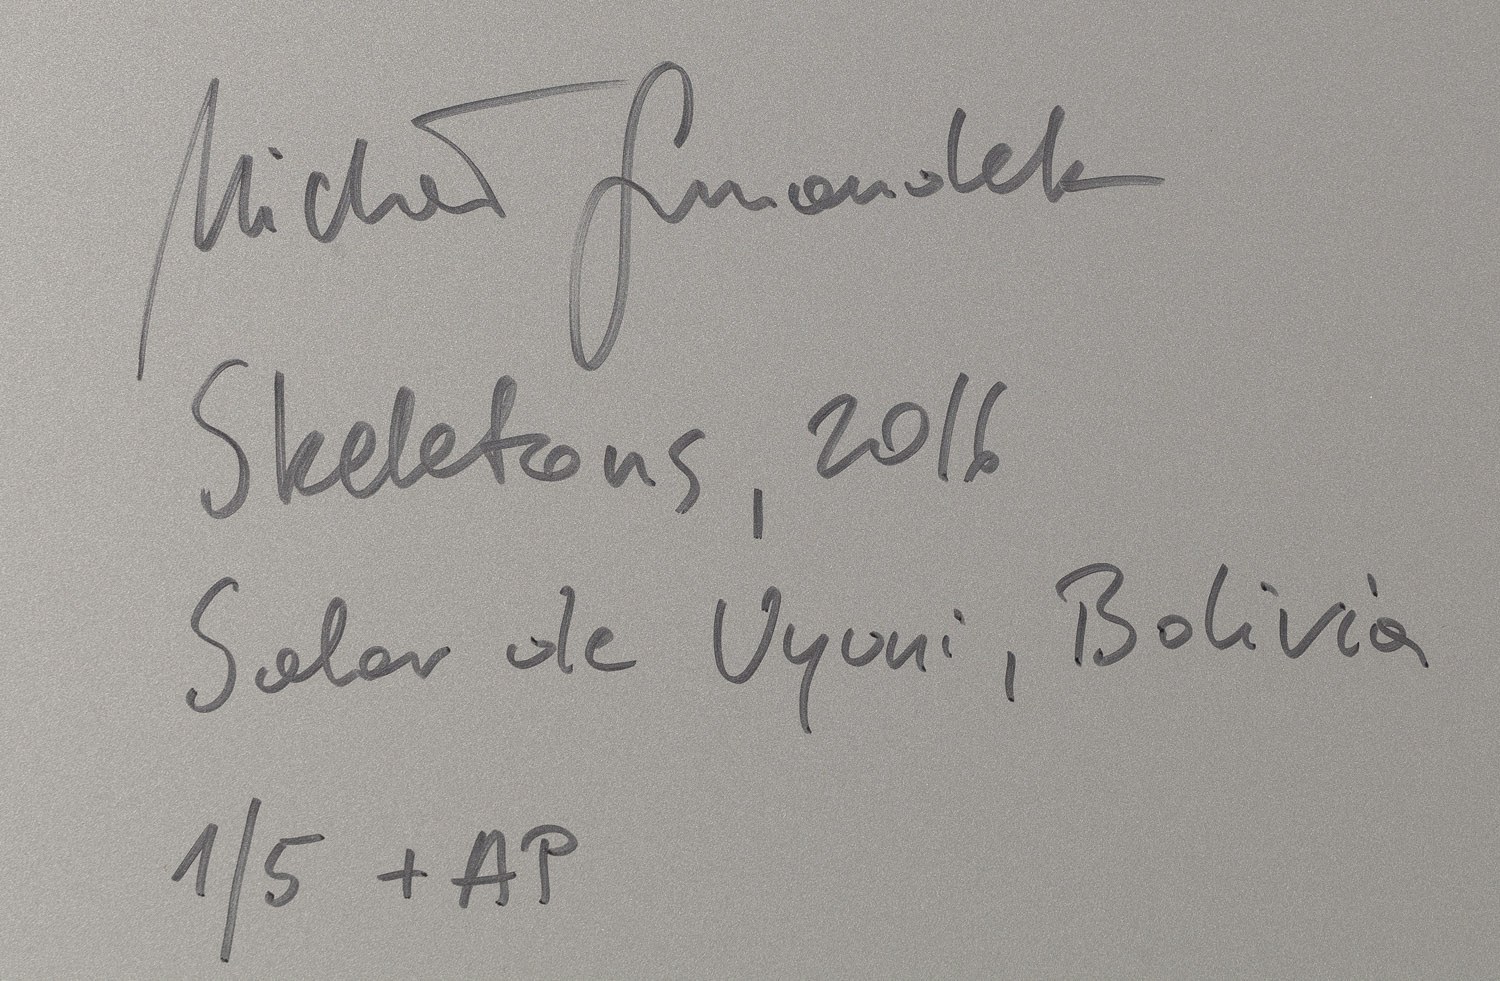 Michał Smandek
Skeletons, 2016
Salar de Uyuni, Bolivia
1/5 + AP